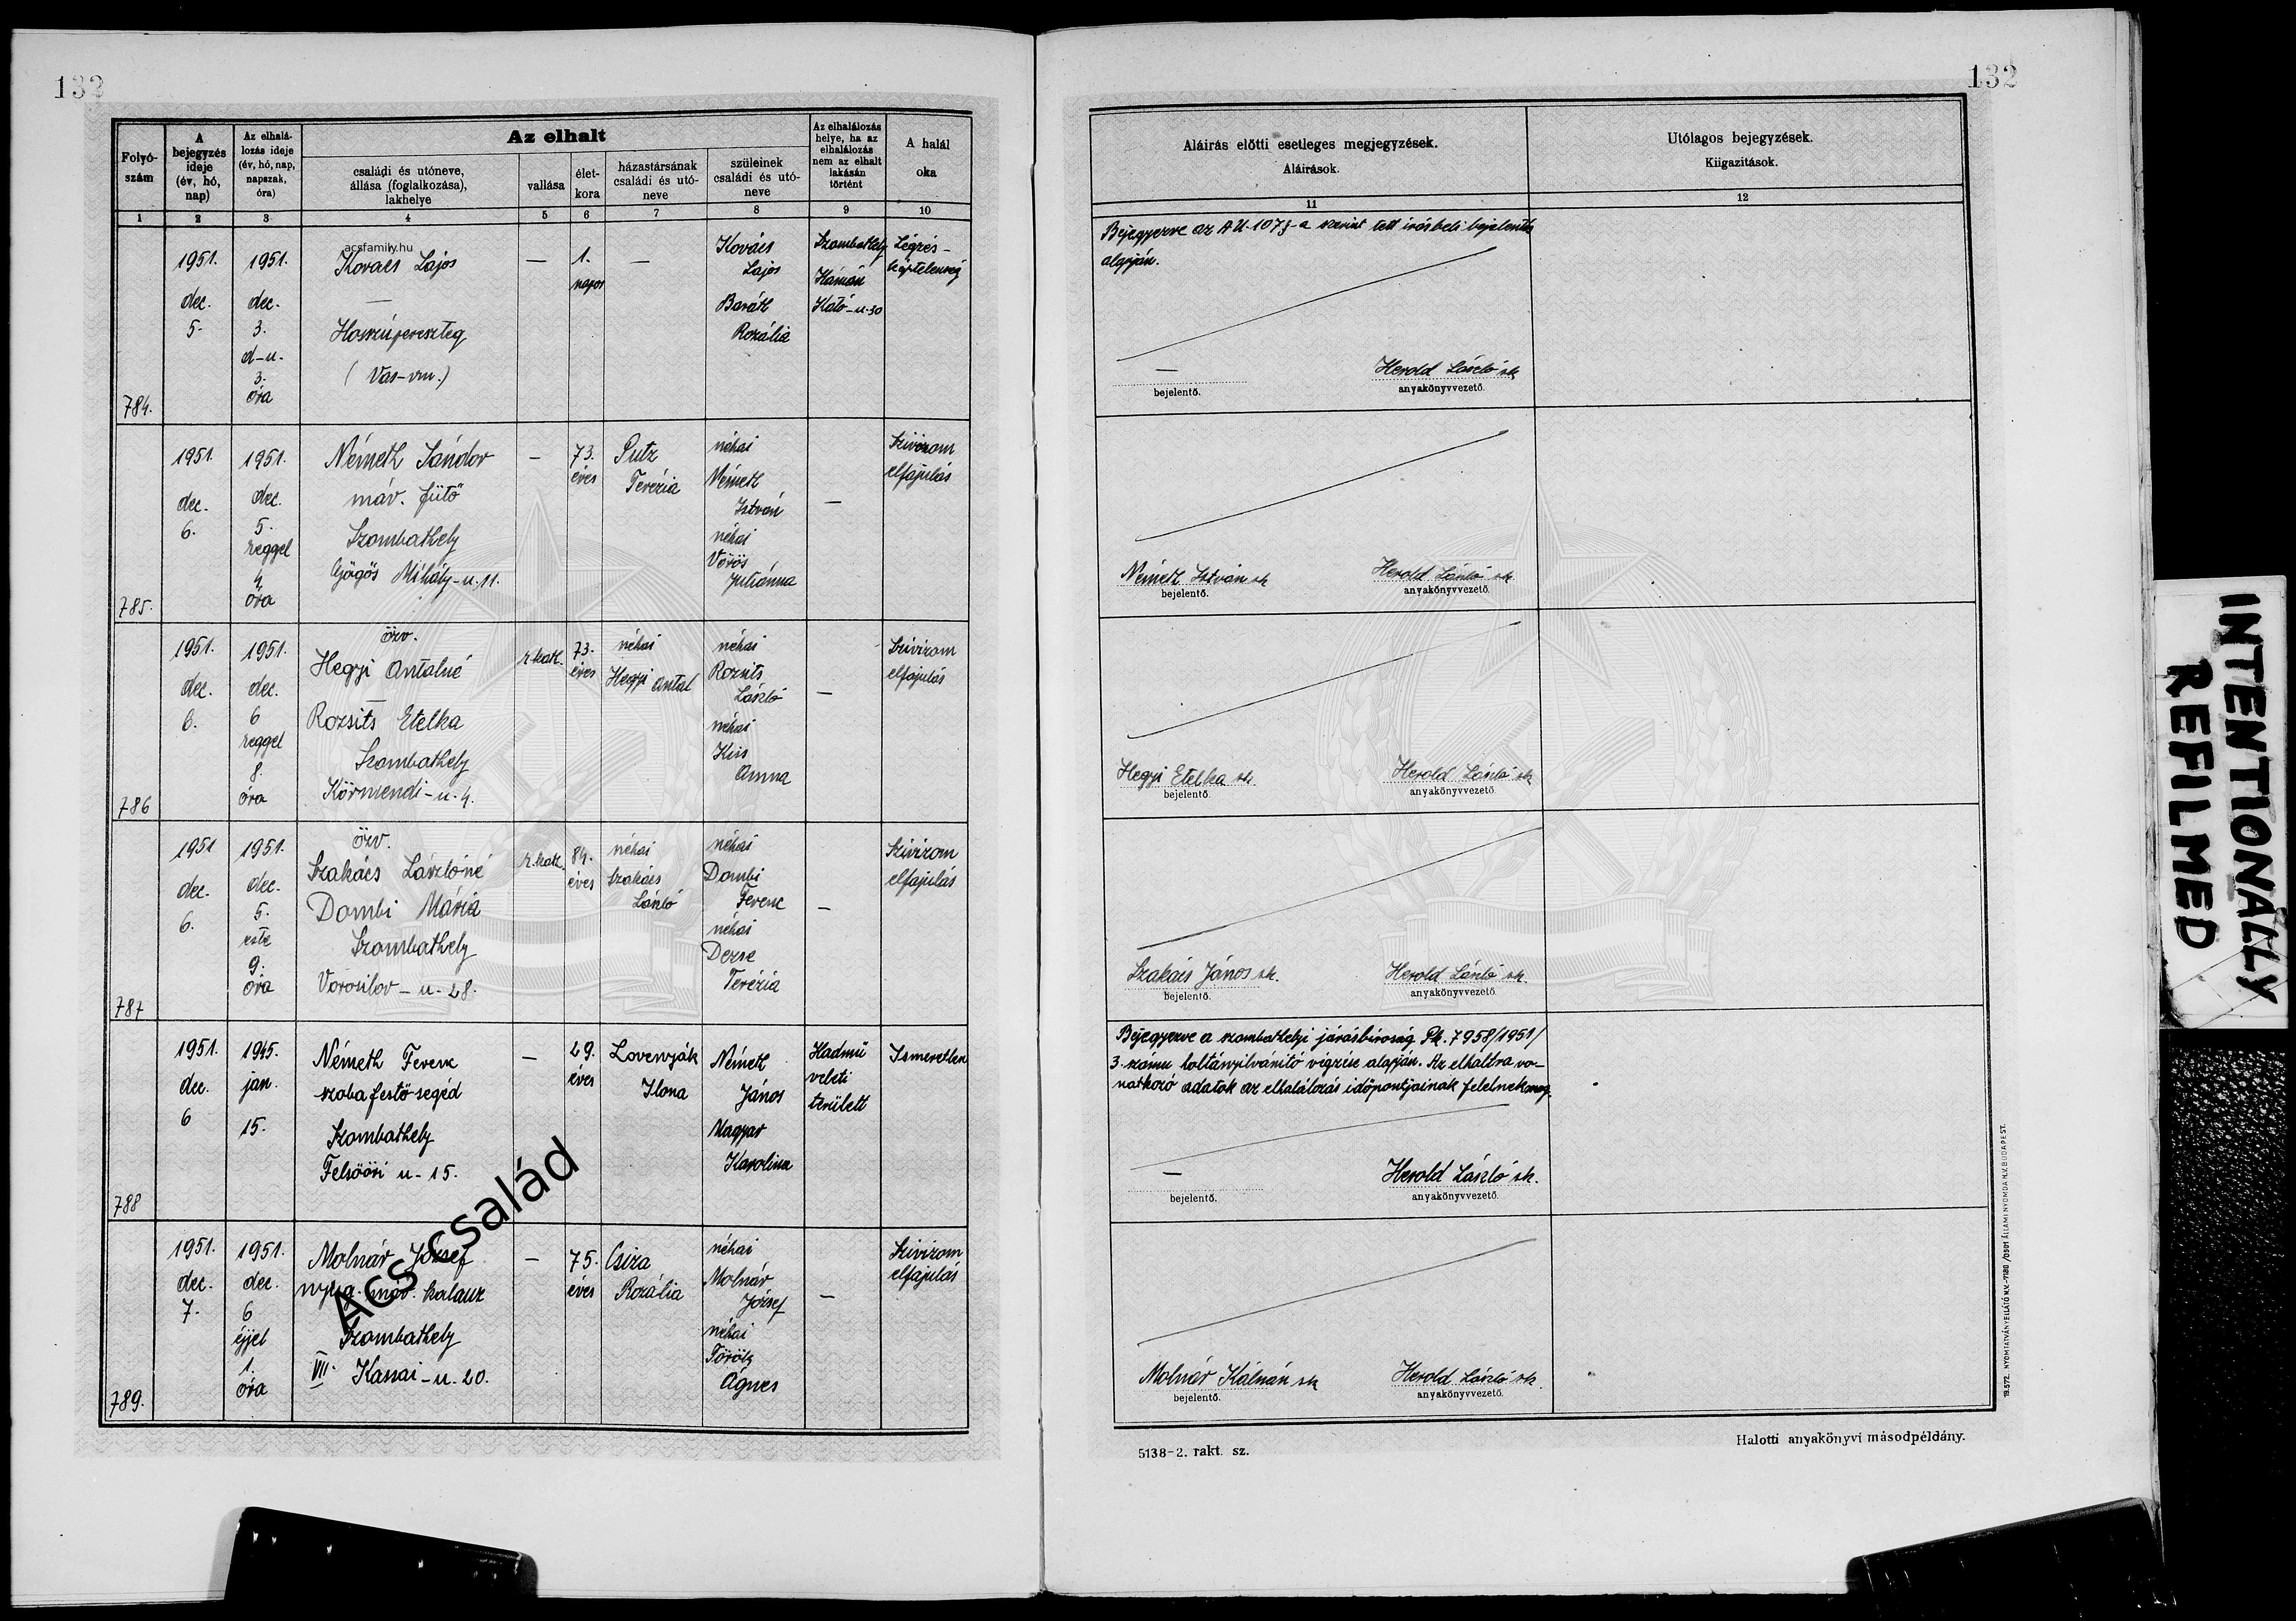 132
132
Folyó-
szám
A
bejegyzés
ideje
(év, hó,
nap)
Az elhalá-
lozás ideje
(év, hó, nap,
napszak,
óra)
Az elhalt
családi és utóneve,
állása (foglalkozása),
lakhelye
vallása
élet-
kora
házastársának
családi és utó-
neve
szüleinek
családi és utó-
neve
Az elhalálozás
helye, ha az
elhalálozás
nem az elhalt
lakásán
történt
A halál
oka
1 2 3 4 5 6 7 8 9 10
784.
1951.
dec.
5.
1951.
dec.
3.
d-u-
3.
óra
acsfamily.hu
Kovács Lajos
—
Hosszúpereszteg
(Vas-vm.)
—
1.
napos
—
Kovács
Lajos
Baráth
Rozália
Szombathely
Hámán
Kató-u-30
Légzés-
képtelenség
785.
1951.
dec.
6.
1951.
dec.
5.
reggel
4
óra
Németh Sándor
máv. fütő
Szombathely
Gőgös Mihály-u.11.
—
73.
éves
Putz
Terézia
néhai
Németh
István
néhai
Vörös
Juliánna
—
Szivizom
elfajulás
786
1951.
dec.
6.
1951.
dec.
6
reggel
8.
óra
özv.
Hegyi Antalné
—
Rozsits Etelka
Szombathely
Körmendi-u.4.
r.kath.
73.
éves
néhai
Hegyi Antal
néhai
Rozsits
László
néhai
Kiss
Anna
—
Szivizom
elfajulás
787
1951
dec.
6.
1951.
dec.
5.
este
9.
óra
özv.
Szakács Lászlóné
Dombi Mária
Szombathely
Vorosilov-u-28.
r.kath.
84.
éves
néhai
Szakács
László
néhai
Dombi
Ferenc
néhai
Dezse
Terézia
—
Szivizom
elfajulás
788
1951.
dec.
6
1945.
jan.
15.
Németh Ferenc
szobafestősegéd
Szombathely
Felsőőri u-15.
—
29.
éves
Lovenyák
Ilona
Németh
János
Magyar
Karolina
Hadmű
veleti
terület
Ismeretlen
789.
1951.
dec.
7.
1951.
dec.
6
éjjel
1.
óra
Molnár József
nyug. máv. kalauz
Szombathely
VII. Kassai-u.20.
—
75.
éves
Csiza
Rozália
néhai
Molnár
József
néhai
Török
Ágnes
—
Szivizom
elfajulás
Acs család
Aláirás előtti esetleges megjegyzések.
Aláirások.
Utólagos bejegyzések.
Kiigazitások.
11 12
Bejegyezve az A.U.107§-a szerint tett irásbeli bejelentés
alapján.
— Herold László sk
bejelentő. anyakönyvvezető.
Németh István sk Herold László sk
bejelentő. anyakönyvvezető.
Hegyi Etelka sk. Herold László sk
bejelentő. anyakönyvvezető.
Szakács János sk. Herold László sk.
bejelentő. anyakönyvvezető.
Bejegyezve a szombathelyi járásbiróság Pk.7958/1951/
3.számu holtányilvánitó végzése alapján. Az elhaltra vo-
natkozó adatok az elhalálozás időpontjainak felelnek meg.
— Herold László sk.
bejelentő. anyakönyvvezető.
Molnár Kálmán sk Herold László sk.
bejelentő. anyakönyvvezető.
5138-2. rakt. sz.
Halotti anyakönyvi másodpéldány.
INTENTIONALLY
REFILMED